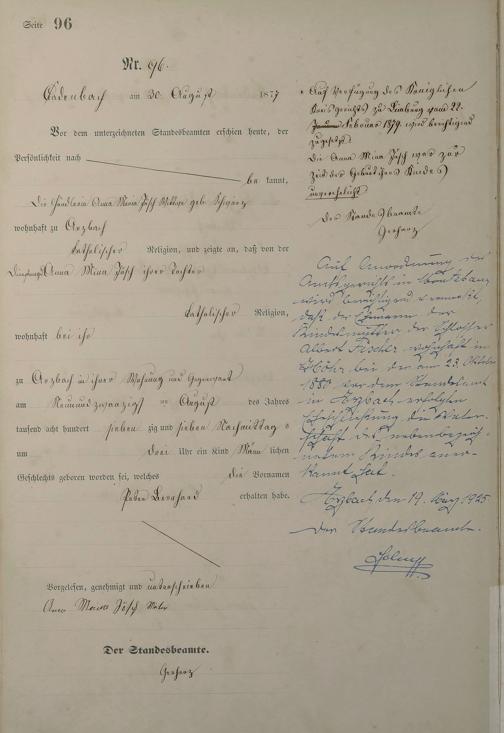 Seite 96
Nr. 96.
Cadenbach am 30. August 1877
Vor dem unterzeichneten Standesbeamten erschien heute, der
Persönlichkeit nach
be kannt,
Die Händlerin Anna Maria Jösch Wittwe geb.
wohnhaft zu Arzbach
katholischer Religion, und zeigte an, daß von der
Anna Maria Jösch ihrer Tochter
katholischer Religion,
wohnhaft bei ihr
zu Arzbach in ihrer Wohnung und Gegenwart
am Neunundzwanzigst en August des Jahres
tausend acht hundert sieben zig und sieben Nachmittag s
um drei Uhr ein Kind Männ lichen
Geschlechts geboren worden sei, welches die Vornamen
Peter Bernhard erhalten habe.
Vorgelesen, genehmigt und unterschrieben
Anna Maria Jösch
Der Standesbeamte.
Gerharz
Auf Verfügung des Königlichen
Kreisgerichts zu Limburg vom 22.
Februar 1879. wird berichtigend
zugesetzt:
Die Anna Maria Jösch war zur
Zeit der Geburt ihres Kindes
unverehelicht
Der Standesbeamte
Gerharz
Auf Anordnung des
Amtsgerichts in Montabaur
wird berichtigend vermerkt,
daß der Ehemann der
Kindesmutter der Schlosser
Albert Fischer wohnhaft in
Höhr bei der am 23. Oktober
vor dem Standesamt
in Arzbach erfolgten
Eheschließung die Vater-
schaft des nebenbezeich-
neten Kindes aner-
kannt hat.
Arzbach, den 19. März 1925
Der Standesbeamte.